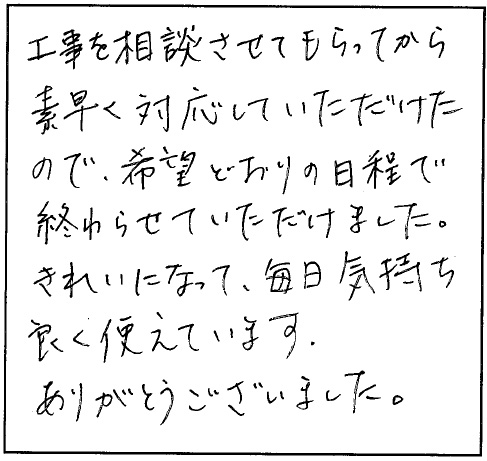 工事を相談させてもらってから
素早く対応していただけた
ので、希望どおりの日程で
終わらせていただけました。
きれいになって、毎日気持ち
良く使えています.
ありがとうございました。